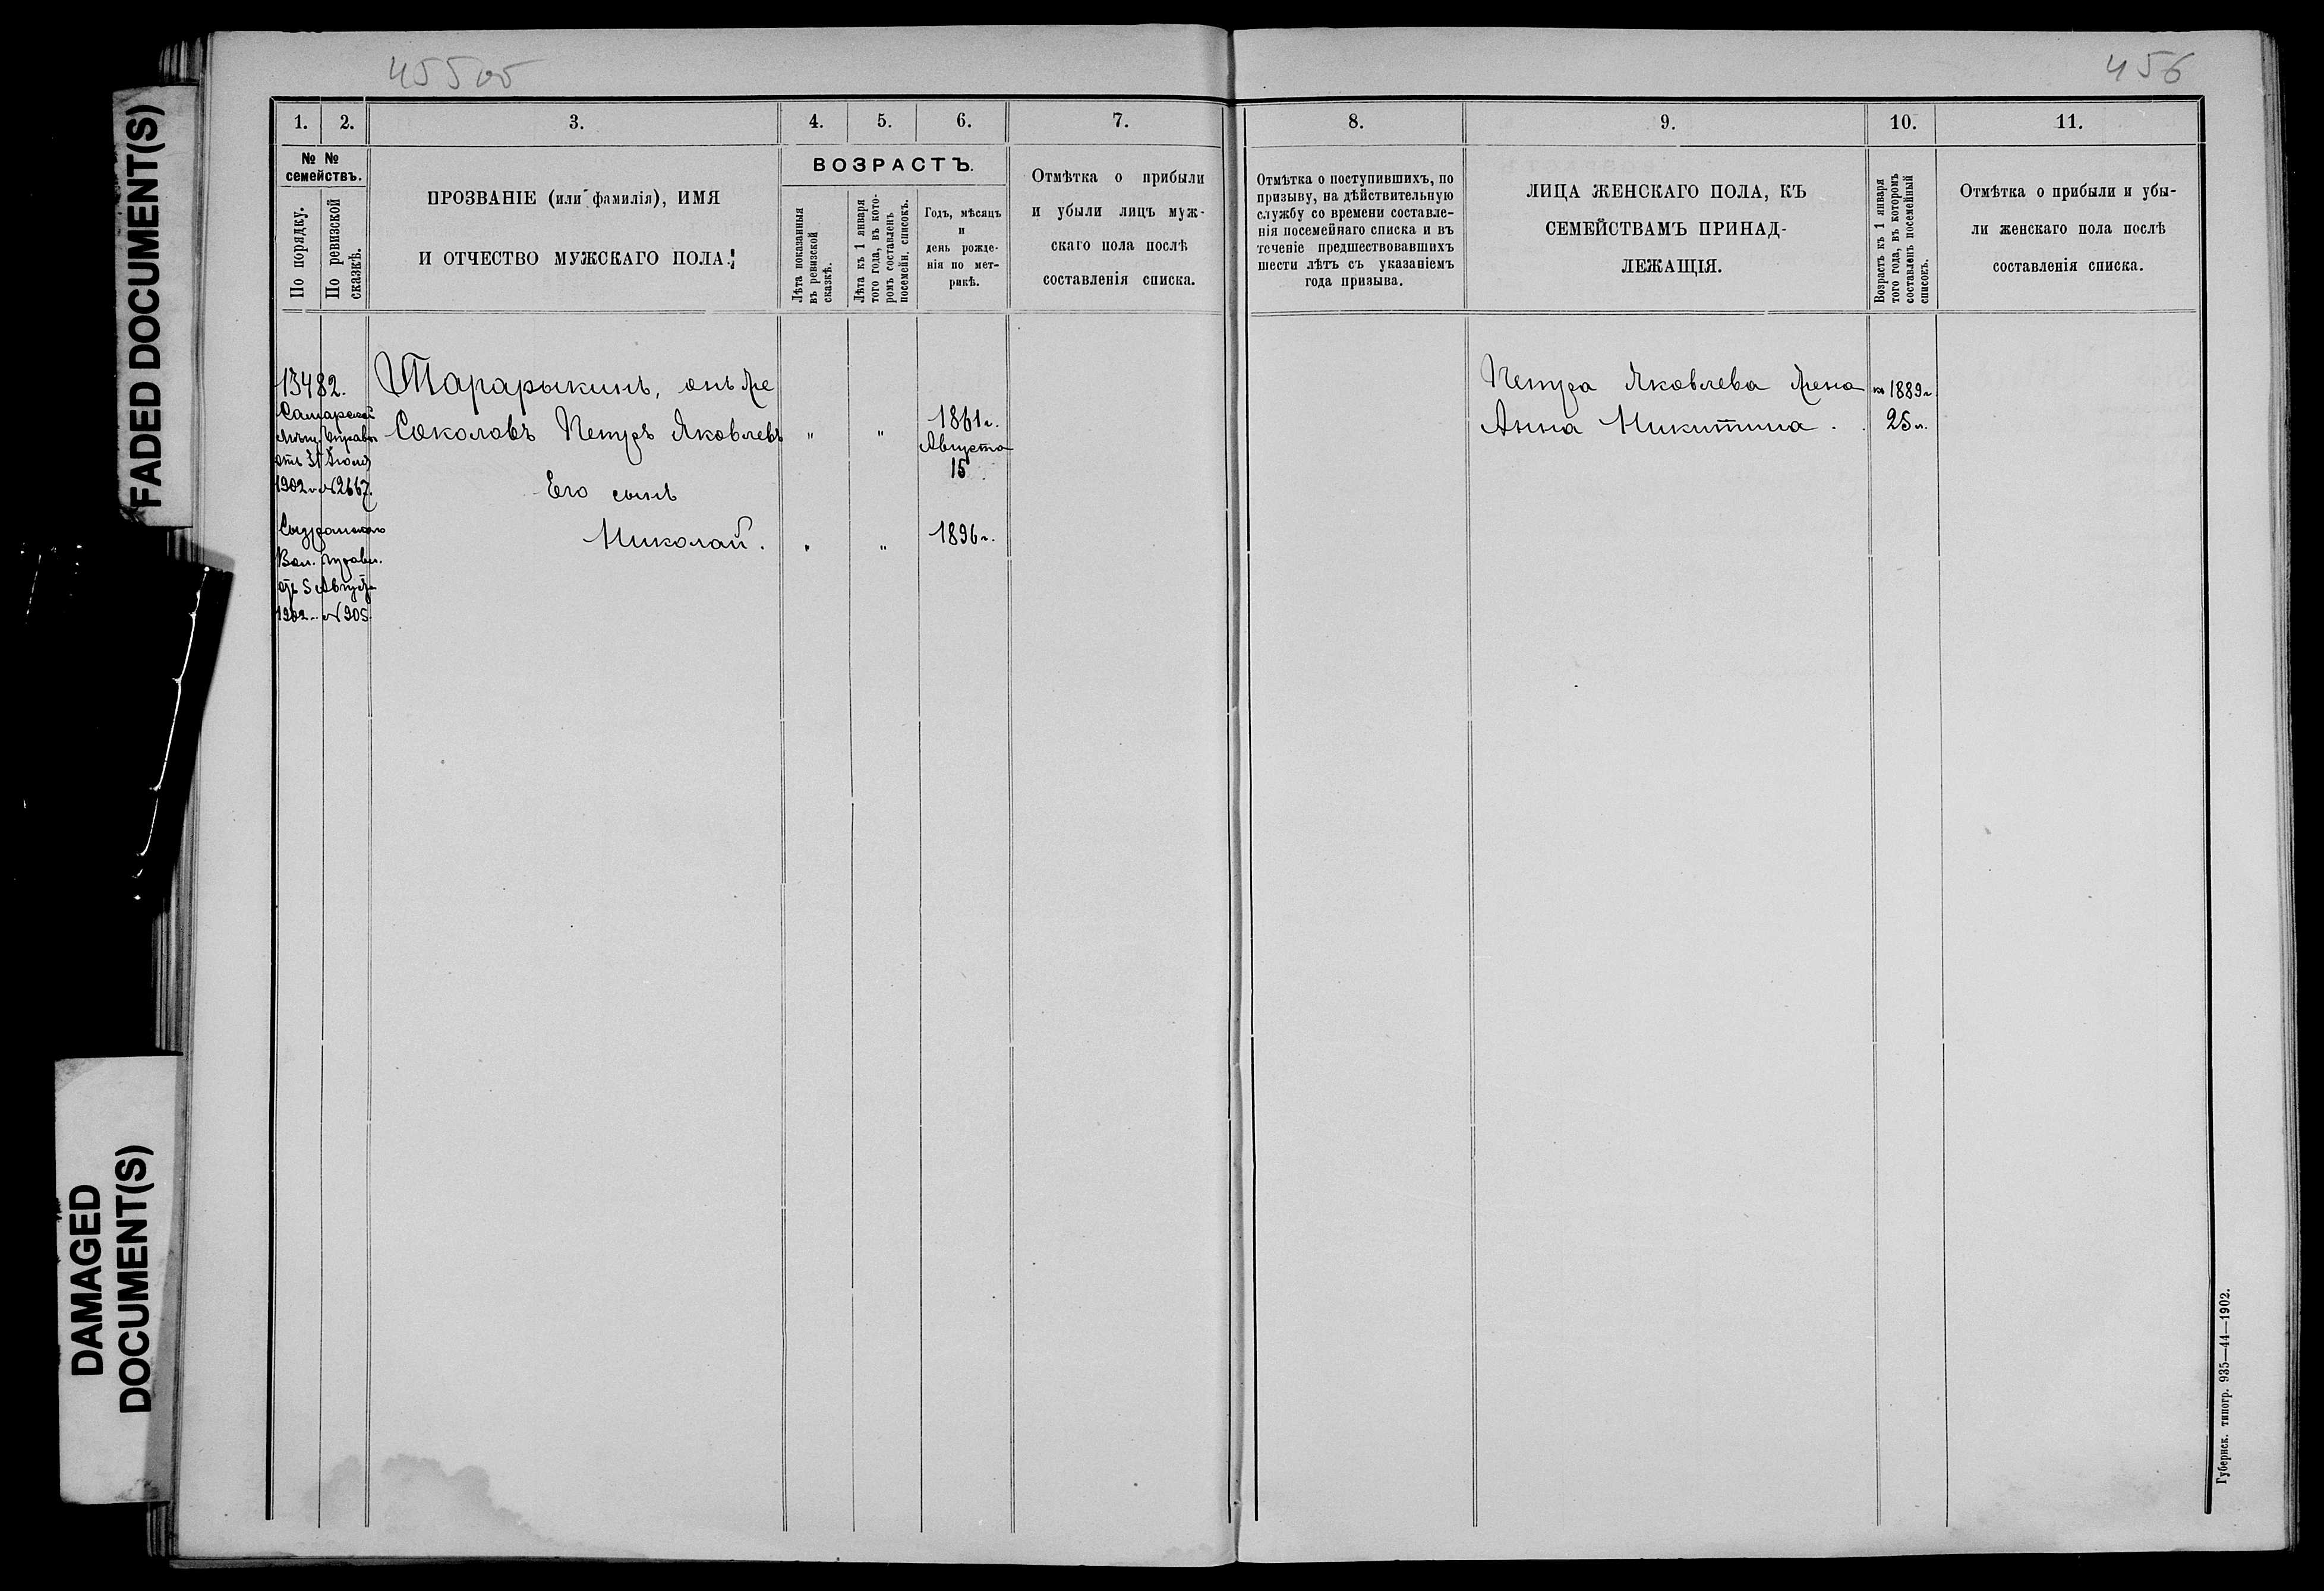 FADED DOCUMENT(S)
DAMAGED
DOCUMENT(S)
455об
456
1.
2.
3.
4.
5.
6.
7.
№ №
семействъ.
По порядку.
По ревизской
сказкѣ.
ПРОЗВАНІЕ (или фамилія), ИМЯ
И ОТЧЕСТВО МУЖСКАГО ПОЛА.
ВОЗРАСТЪ.
Лѣта показанныя
въ ревизской
сказкѣ.
Лѣта къ 1 января
того года, въ кото-
ромъ составленъ
посемейн. списокъ.
Годъ, мѣсяцъ
и
день рожде-
нія по мет-
рикѣ.
Отмѣтка о прибыли
и убыли лицъ муж-
скаго пола послѣ
составленія списка.
13482.
Самарской
Мѣщ. Управы
отъ 31 Іюля
1902 г. №2667.
Сызранскаго
Вол. Правл.
отъ 5 Августа
1902 г. №905.
Тарарыкинъ, онъ же
Соколовъ Петръ Яковлевъ " "
1861 г.
Августа
15
Его сынъ
Николай. " " 1896 г.
8.
9.
10.
11.
Отмѣтка о поступившихъ, по
призыву, на дѣйствительную
службу со времени составле-
нія посемейнаго списка и въ
теченіе предшествовавшихъ
шести лѣтъ съ указаніемъ
года призыва.
ЛИЦА ЖЕНСКАГО ПОЛА, КЪ
СЕМЕЙСТВАМЪ ПРИНАД-
ЛЕЖАЩІЯ.
Возрастъ къ 1 января
того года, въ которомъ
составленъ посемейный
списокъ.
Отмѣтка о прибыли и убы-
ли женскаго пола послѣ
составленія списка.
Петра Яковлева жена
Анна Никитина.
къ 1889 г.
25 л.
Губернск. типогр. 935—44—1902.